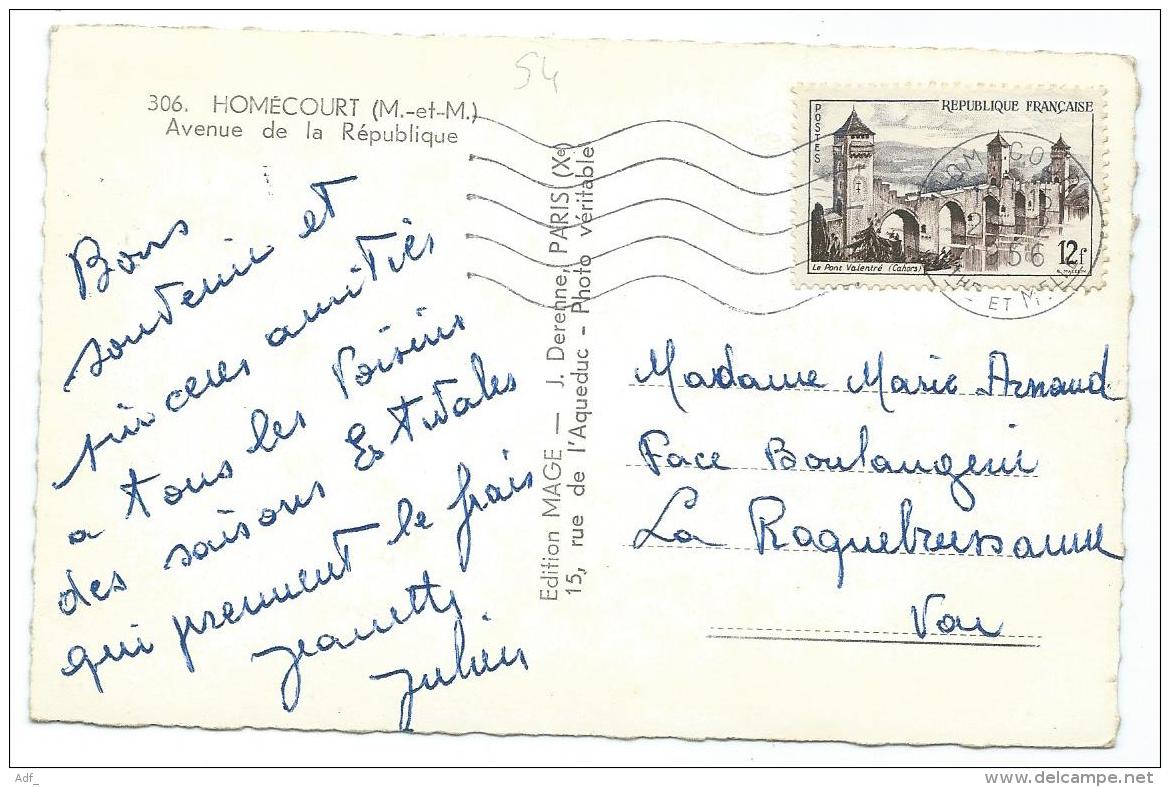 54
306. HOMÉCOURT (M.-et-M.)
Avenue de la République
Bons
souvenir et
sinceres amitiés
a tous les Voisins
des saisons Estivales
qui prennent le frais
Jeanette
Julien
Edition MAGE — J. Derenne, PARIS (Xe)
15, rue de l'Aqueduc - Photo véritable
POSTES
REPUBLIQUE FRANÇAISE
Le Pont Valentré (Cahors)
12f
56
ET M
Madame Marie Arnaud
Face Boulangerie
La Roquebrussanne
Var
Adf_
www.delcampe.net